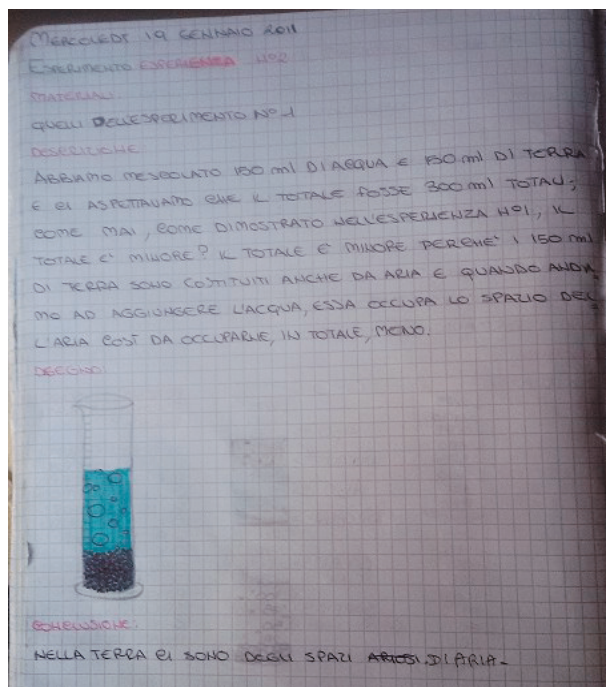 MERCOLEDÌ 19 GENNAIO 2011
ESPERIMENTO ESPERIENZA N°2
MATERIALI:
QUELLI DELL'ESPERIMENTO N°1
DESCRIZIONE
ABBIAMO MESCOLATO 150 ml DI ACQUA E 150 ml DI TERRA
E CI ASPETTAVAMO CHE IL TOTALE FOSSE 300 ml TOTALI;
COME MAI, COME DIMOSTRATO NELL'ESPERIENZA N°1, IL
TOTALE E' MINORE? IL TOTALE E' MINORE PERCHE' I 150 ml
DI TERRA SONO COSTITUITI ANCHE DA ARIA E QUANDO ANDIA
MO AD AGGIUNGERE L'ACQUA, ESSA OCCUPA LO SPAZIO DEL
L'ARIA COSÌ DA OCCUPARNE, IN TOTALE, MENO.
DISEGNO:
CONCLUSIONE:
NELLA TERRA CI SONO DEGLI SPAZI ARIOSI DI ARIA.